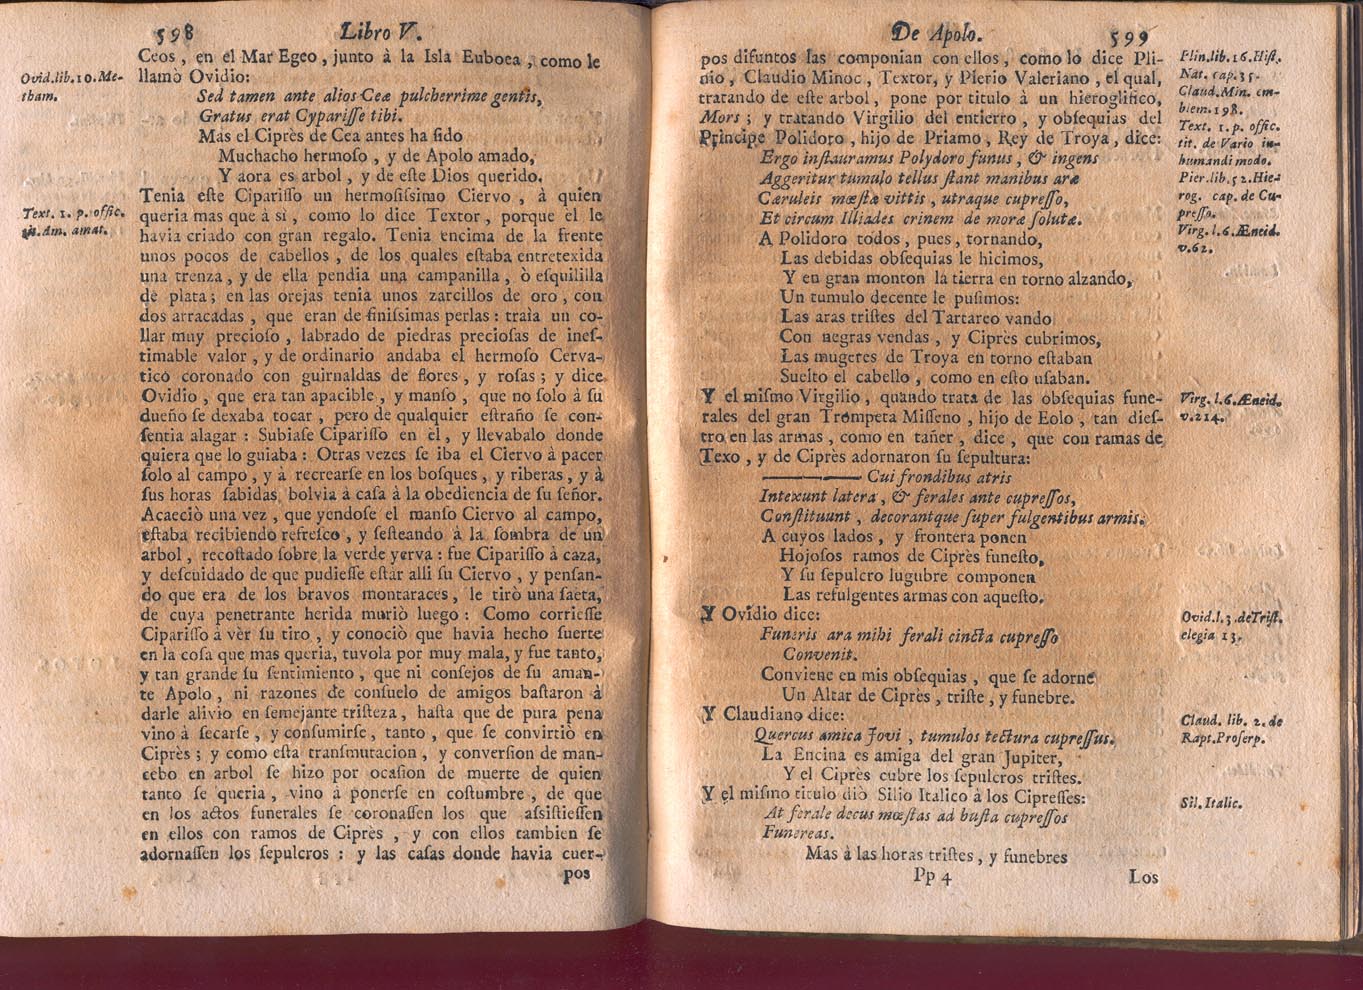 598 Libro V.
Ceos, en el Mar Egeo, junto à la Isla Euboea, como le
Ovid.lib.10.Me-
tham.
llamò Ovidio:
Sed tamen ante alios Ceæ pulcherrime gentis,
Gratus erat Cyparisse tibi.
Mas el Ciprès de Cea antes ha sido
Muchacho hermoso, y de Apolo amado,
Y aora es arbol, y de este Dios querido.
Tenia este Ciparisso un hermosissimo Ciervo, à quien
Text. 1. p. offic.
tit. Am. amat.
queria mas que à sì, como lo dice Textor, porque èl le
havia criado con gran regalo. Tenia encima de la frente
unos pocos de cabellos, de los quales estaba entretexida
una trenza, y de ella pendia una campanilla, ò esquililla
de plata; en las orejas tenia unos zarcillos de oro, con
dos arracadas, que eran de finissimas perlas: traìa un co-
llar muy precioso, labrado de piedras preciosas de ines-
timable valor, y de ordinario andaba el hermoso Cerva-
ticò coronado con guirnaldas de flores, y rosas; y dice
Ovidio, que era tan apacible, y manso, que no solo à su
dueño se dexaba tocar, pero de qualquier estraño se con-
sentia alagar: Subiase Ciparisso en èl, y llevabalo donde
quiera que lo guiaba: Otras veces se iba el Ciervo à pacer
solo al campo, y à recrearse en los bosques, y riberas, y à
sus horas sabidas bolvia à casa à la obediencia de su señor.
Acaeciò una vez, que yendose el manso Ciervo al campo,
estaba recibiendo refresco, y sesteando à la sombra de un
arbol, recostado sobre la verde yerva: fue Ciparisso à caza,
y descuidado de que pudiesse estàr alli su Ciervo, y pensan-
do que era de los bravos montaraces, le tirò una saeta,
de cuya penetrante herida muriò luego: Como corriesse
Ciparisso à vèr su tiro, y conociò que havia hecho suerte
en la cosa que mas queria, tuvola por muy mala, y fue tanto,
y tan grande su sentimiento, que ni consejos de su aman-
te Apolo, ni razones de consuelo de amigos bastaron à
darle alivio en semejante tristeza, hasta que de pura pena
vino à secarse, y consumirse, tanto, que se convirtiò en
Ciprès; y como esta transmutacion, y conversion de man-
cebo en arbol se hizo por ocasion de muerte de quien
tanto se queria, vino à ponerse en costumbre, de que
en los actos funerales se coronassen los que assistiessen
en ellos con ramos de Ciprès, y con ellos tambien se
adornassen los sepulcros: y las casas donde havia cuer-
pos
De Apolo. 599
pos difuntos las componian con ellos, como lo dice Pli-
nio, Claudio Minoc, Textor, y Pierio Valeriano, el qual,
tratando de este arbol, pone por titulo à un hieroglifico,
Mors; y tratando Virgilio del entierro, y obsequias del
Principe Polidoro, hijo de Priamo, Rey de Troya, dice:
Plin.lib.16.Hist.
Nat. cap.35.
Claud.Min. em-
blem.198.
Text. 1. p. offic.
tit. de Vario in-
humandi modo.
Pier.lib.52.Hie-
rog. cap. de Cu-
presso.
Virg. l.6.Æneid.
v.62.
Ergo instauramus Polydoro funus, & ingens
Aggeritur tumulo tellus stant manibus aræ
Cæruleis mœstæ vittis, utraque cupresso,
Et circum Illiades crinem de moræ solutæ.
A Polidoro todos, pues, tornando,
Las debidas obsequias le hicimos,
Y en gran monton la tierra en torno alzando,
Un tumulo decente le pusimos:
Las aras tristes del Tartareo vando
Con negras vendas, y Ciprès cubrimos,
Las mugeres de Troya en torno estaban
Suelto el cabello, como en esto usaban.
Y el mismo Virgilio, quando trata de las obsequias fune-
rales del gran Trompeta Misseno, hijo de Eolo, tan dies-
tro en las armas, como en tañer, dice, que con ramas de
Texo, y de Ciprès adornaron su sepultura:
Virg. l.6.Æneid.
v.214.
Cui frondibus atris
Intexunt latera, & ferales ante cupressos,
Constituunt, decorantque super fulgentibus armis.
A cuyos lados, y frontera ponen
Hojosos ramos de Ciprès funesto,
Y su sepulcro lugubre componen
Las refulgentes armas con aquesto.
Y Ovidio dice:
Ovid.l.3.deTrist.
elegia 13.
Funeris ara mihi ferali cincta cupresso
Convenit.
Conviene en mis obsequias, que se adorne
Un Altar de Ciprès, triste, y funebre.
Y Claudiano dice:
Claud. lib. 2. de
Rapt.Proserp.
Quercus amica Jovi, tumulos tectura cupressus.
La Encina es amiga del gran Jupiter,
Y el Ciprès cubre los sepulcros tristes.
Y el mismo titulo diò Silio Italico à los Cipresses:
Sil. Italic.
At ferale decus mœstas ad busta cupressos
Funereas.
Mas à las horas tristes, y funebres
Pp 4 Los